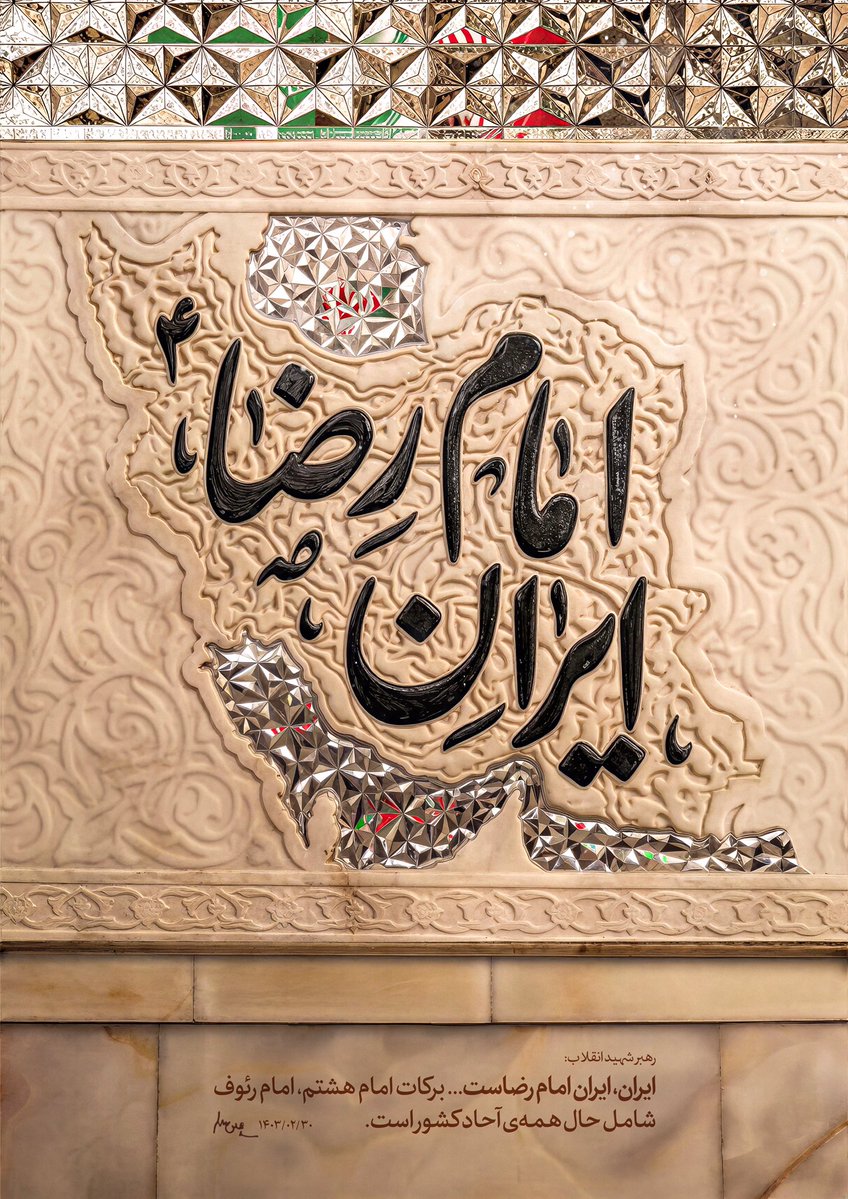 امام رضا ؑ
ایران
رهبر شهید انقلاب:
ایران، ایران امام رضاست... برکات امام هشتم، امام رئوف
شامل حال همه‌ی آحاد کشور است.
۱۴۰۳/۰۲/۳۰